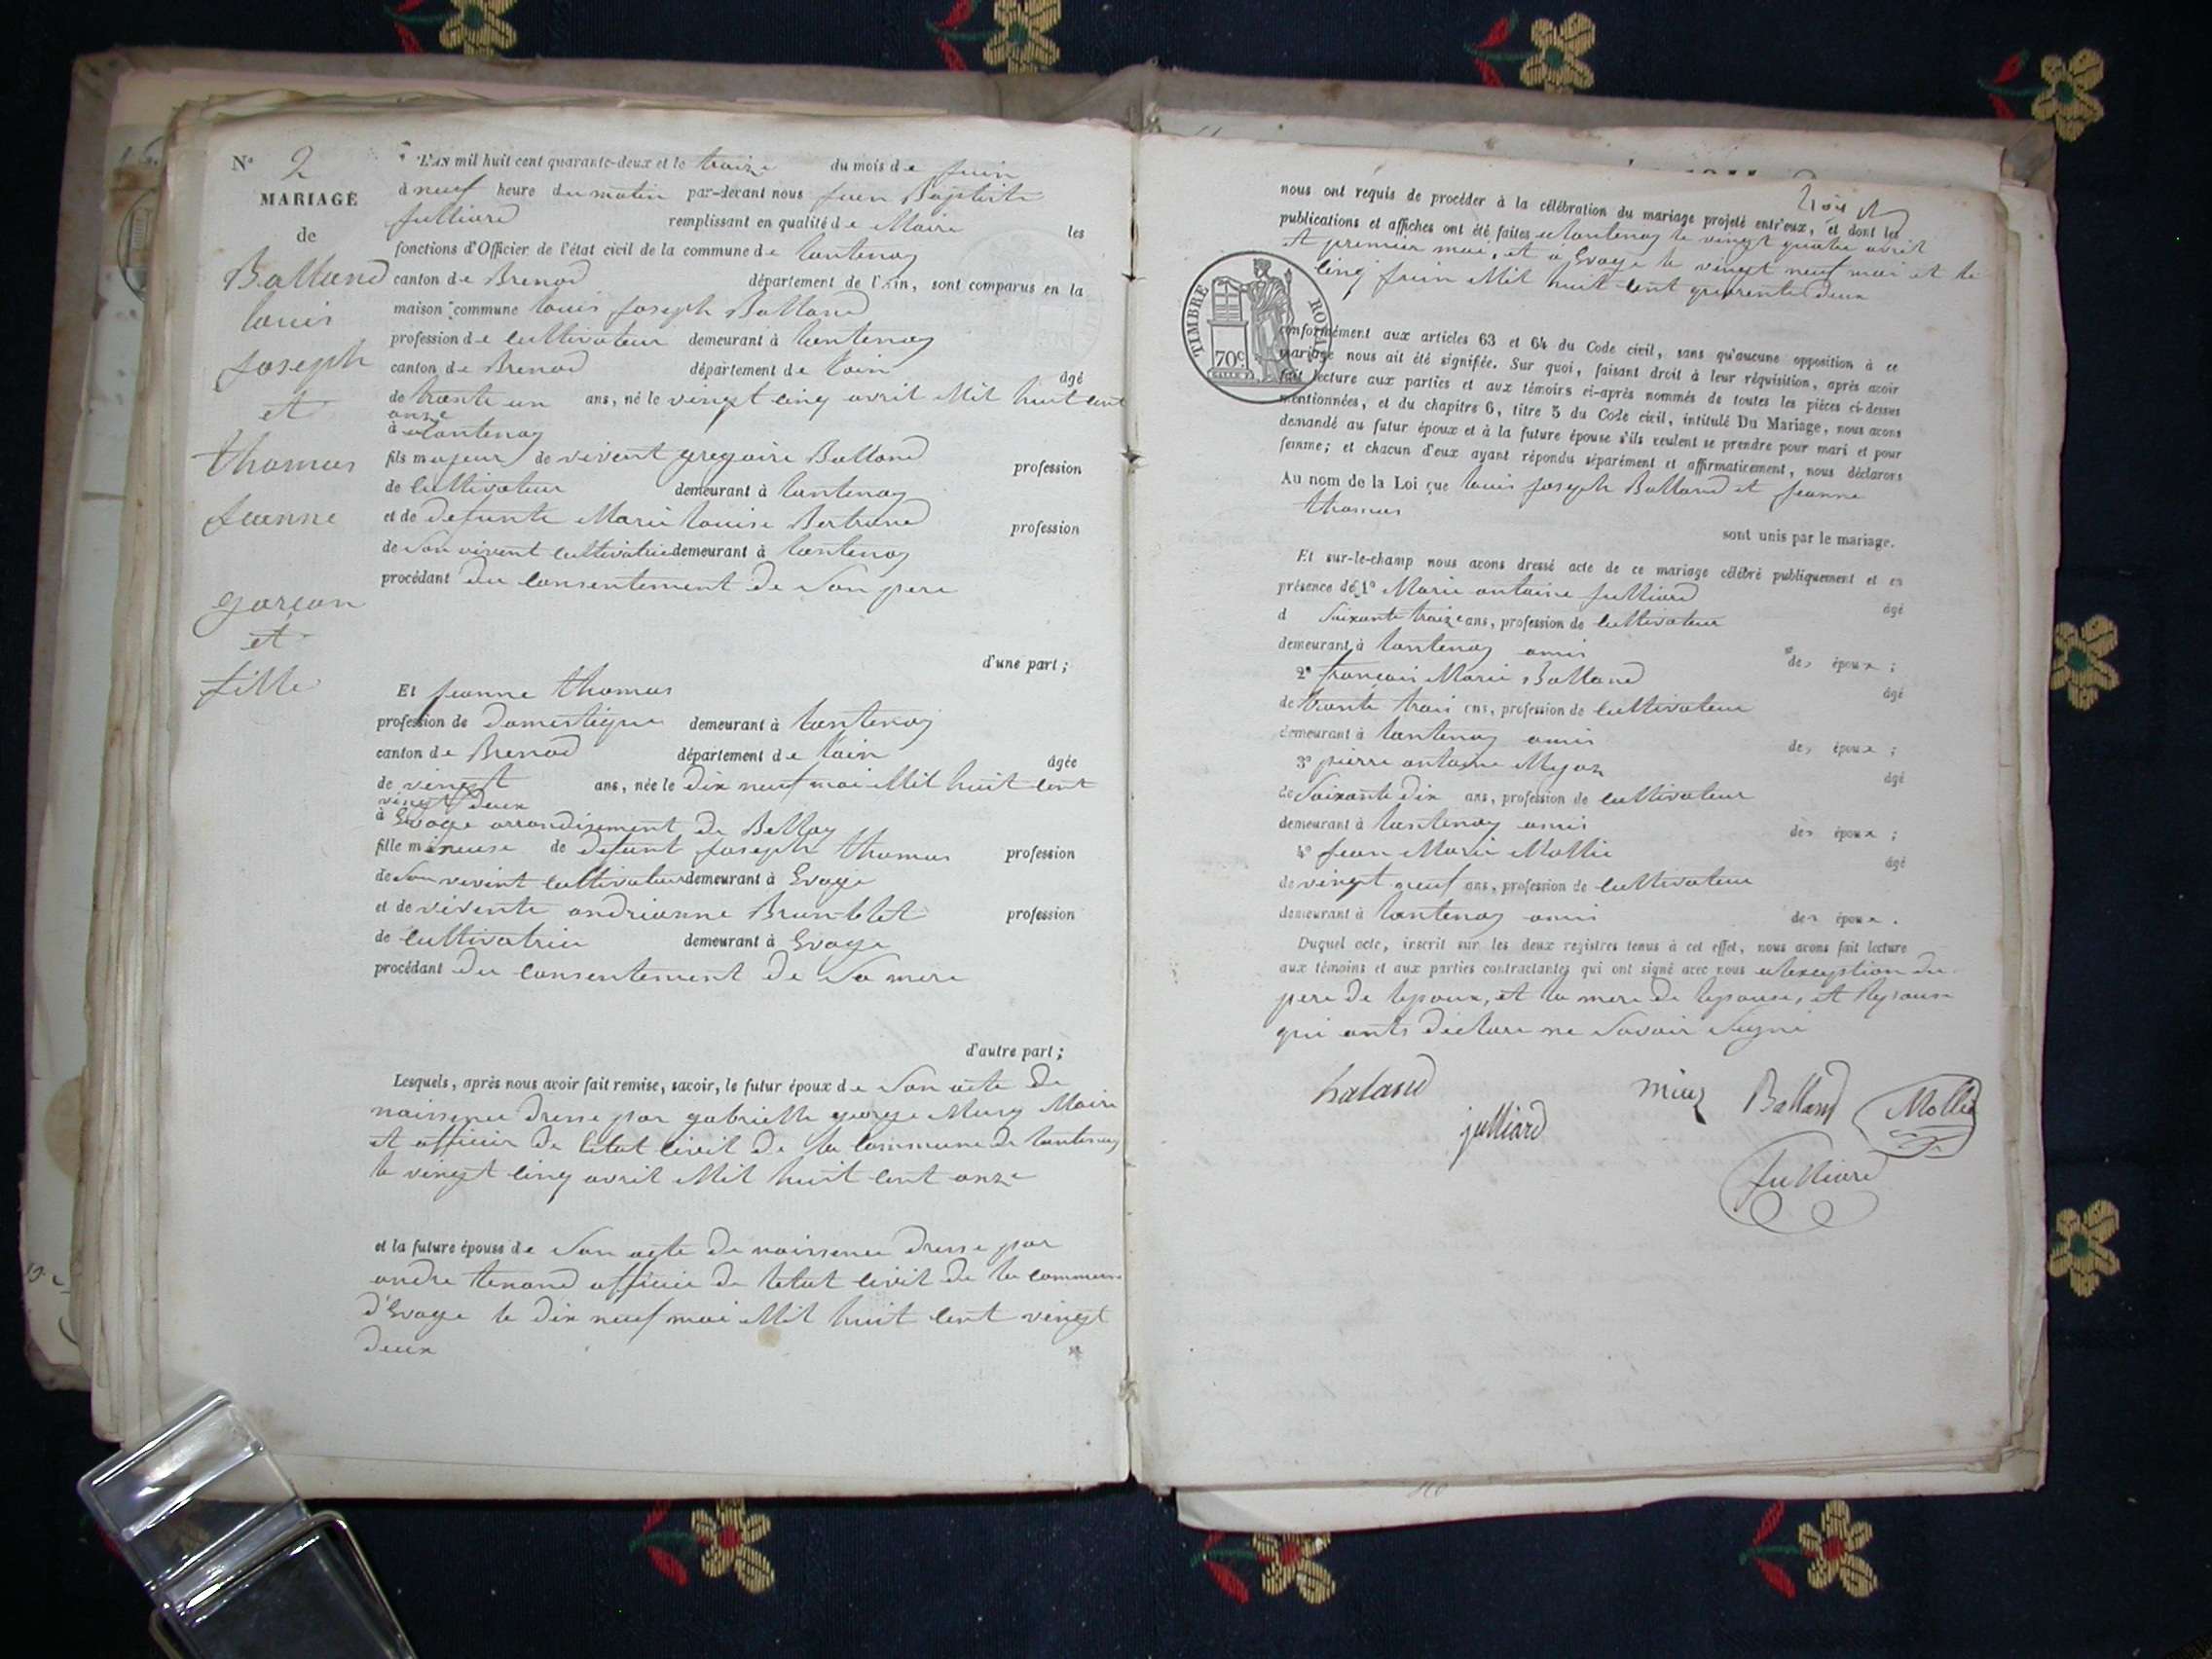 N° 2
MARIAGE
de
Balland
louis
joseph
et
thomas
jeanne
garçon
et
fille
L'AN mil huit cent quarante-deux et le traize du mois de juin
à neuf heure du matin par-devant nous jean Baptiste
julliard remplissant en qualité de Maire les
fonctions d'Officier de l'état civil de la commune de lantenay
canton de Brenod département de l'Ain, sont comparus en la
maison commune louis joseph Balland
profession de cultivateur demeurant à lantenay
canton de Brenod département de lain âgé
de trante un ans, né le vingt cinq avril Mil huit cent
onze
à lantenay
fils majeur de vivent gregoire Balland profession
de cultivateur demeurant à lantenay
et de defunte Marie louise Bertrand profession
de son vivent cultivatrice demeurant à lantenay
procédant du consentement de son pere
d'une part ;
Et jeanne thomas
profession de domestique demeurant à lantenay
canton de Brenod département de lain âgée
de vingt ans, née le dix neuf mai Mil huit cent
vingt deux
à Evoge arrondisement de Bellay
fille mineuse de defunt joseph thomas profession
de son vivent cultivateur demeurant à Evoge
et de vivente andrianne Brun-blet profession
de cultivatrice demeurant à Evoge
procédant du consentement de sa mere
d'autre part ;
Lesquels, après nous avoir fait remise, savoir, le futur époux de son acte de
naissence dresse par gabrielle george Mury Maire
et officier de letat civil de la commune de lantenay
le vingt cinq avril Mil huit cent onze
et la future épouse de son acte de naissence dresse par
andre tenand officier de letat civil de la commune
d'Evoge le dix neuf mai Mil huit cent vingt
deux
nous ont requis de procéder à la célébration du mariage projeté entr'eux, et dont les
publications et affiches ont été faites a lantenay le vingt quatre avril
et premier mai, et a Evoge le vingt neuf mai et le
cinq juin Mil huit cent quarente deux
TIMBRE ROYAL
70c
conformément aux articles 63 et 64 du Code civil, sans qu'aucune opposition à ce
mariage nous ait été signifiée. Sur quoi, faisant droit à leur réquisition, après avoir
fait lecture aux parties et aux témoins ci-après nommés de toutes les pièces ci-dessus
mentionnées, et du chapitre 6, titre 5 du Code civil, intitulé Du Mariage, nous avons
demandé au futur époux et à la future épouse s'ils veulent se prendre pour mari et pour
femme; et chacun d'eux ayant répondu séparément et affirmativement, nous déclarons
Au nom de la Loi que louis joseph Balland et jeanne
thomas
sont unis par le mariage.
Et sur-le-champ nous avons dressé acte de ce mariage célébré publiquement et en
présence de 1° Marie antoine julliard âgé
d soixante traize ans, profession de cultivateur
demeurant à lantenay amis des époux ;
2° françois Marie Balland âgé
de trante trois ans, profession de cultivateur
demeurant à lantenay amis des époux ;
3° pierre antoine âgé
de soixante dix ans, profession de cultivateur
demeurant à lantenay amis des époux ;
4° jean Marie Mollie âgé
de vingt neuf ans, profession de cultivateur
demeurant à lantenay amis des époux .
Duquel acte, inscrit sur les deux registres tenus à cet effet, nous avons fait lecture
aux témoins et aux parties contractantes qui ont signé avec nous a lexeption du
pere de lepoux, et la mere de lepouse, et lepouse
qui onts declare ne savoir signé
balland
Balland
Mollie
julliard
Julliard